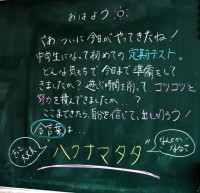 おはよう
"さあ ついに 今日がやってきたね!
中学生になって初めての 定期テスト。
どんな気もちで 今日まで 準備をして
きましたか? 遊ぶ時間を削って コツコツと
努力を積んできましたか、、、?
ここまできたら、自分を信じて、出しきろう!
合言葉は…
だいじょうぶ
"ハクナマタタ"
なんとかなるさ